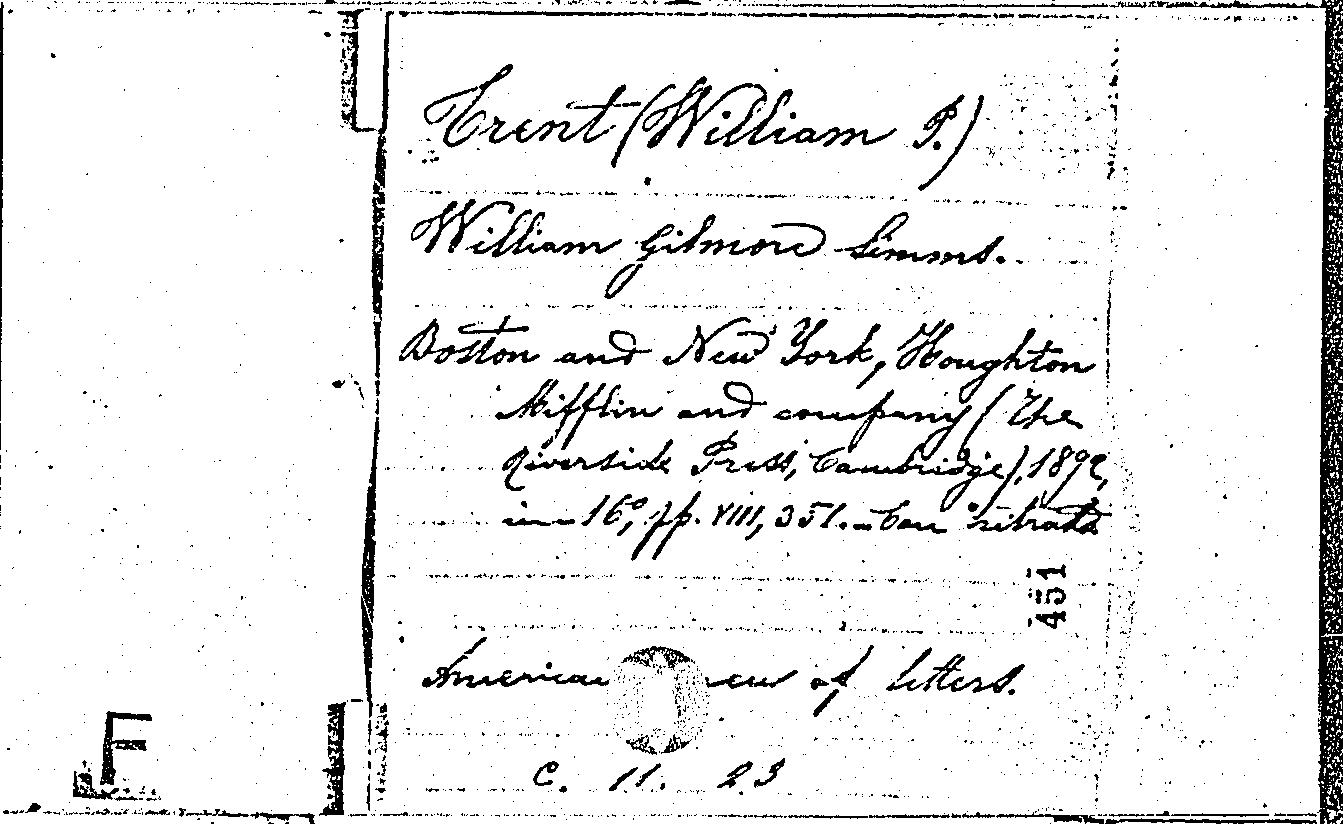 Trent (William P.)
William Gilmore Simms.
Boston and New York, Houghton
Mifflin and company (The
Riverside Press, Cambridge), 1892,
in-16°, pp. VIII, 351. - Con ritratto
451
American men of letters.
F
C. 11. 23